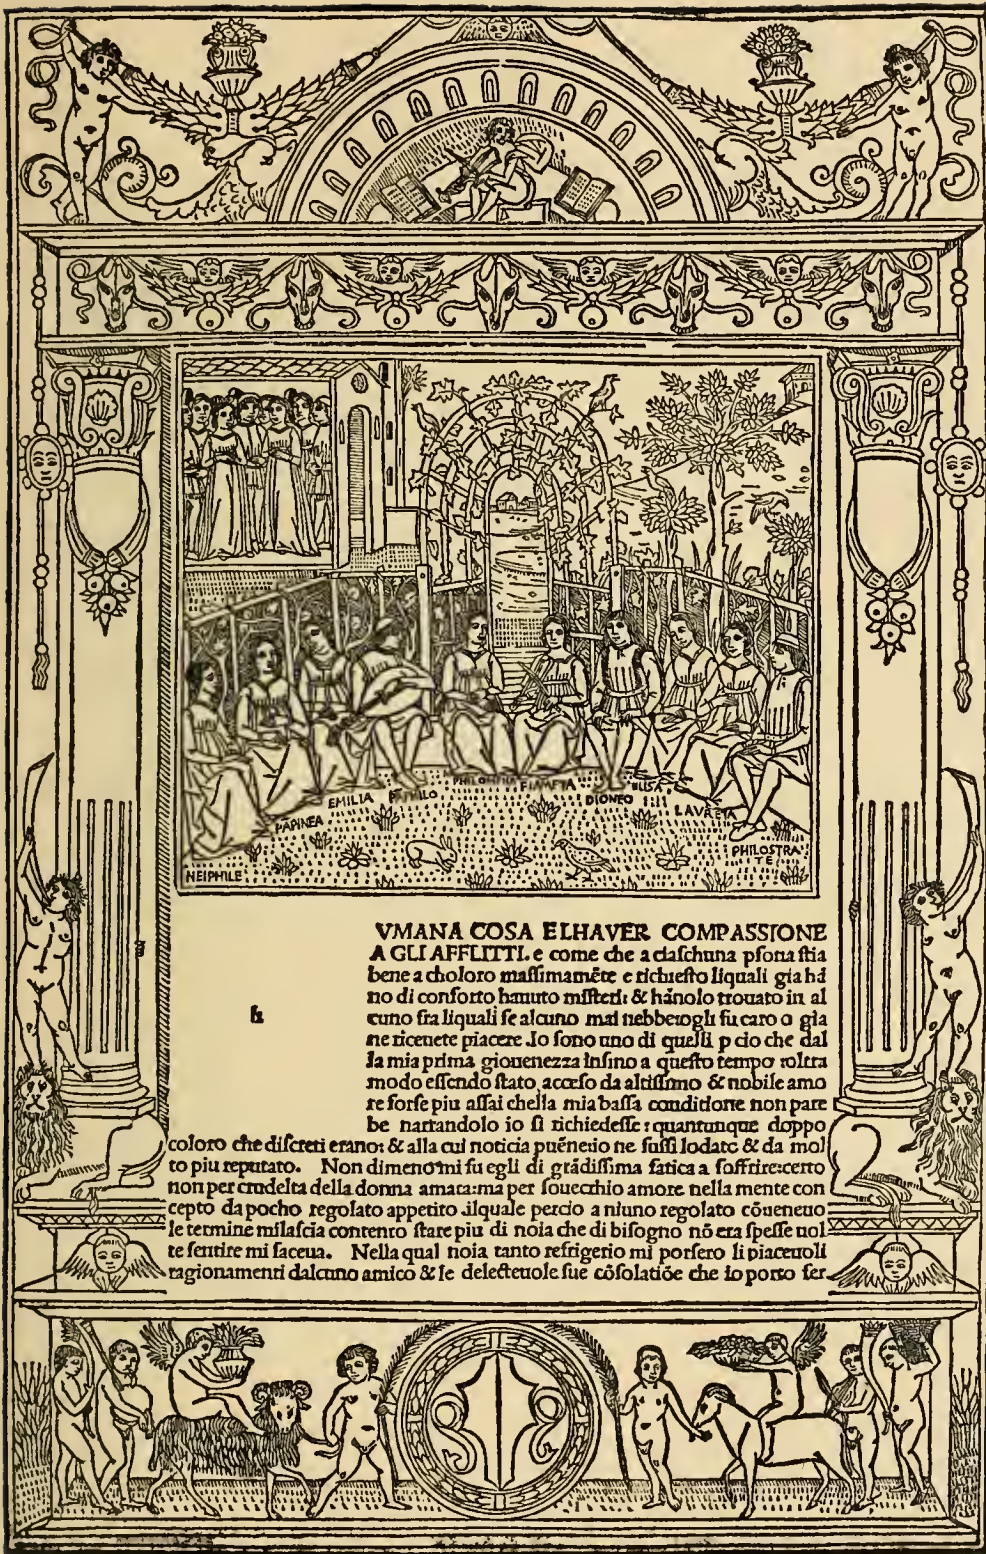 EMILIA PAMPHILO PHILOMENA FIAMETA DIONEO ELISA
PĀPINEA LAVRETA
NEIPHILE PHILOSTRA
TE
h
VMANA COSA ELHAVER COMPASSIONE
A GLI AFFLITTI. e come che a ciaſchuna pſona ſtia
bene a choloro maſſimamēte e richieſto liquali gia hā
no di conforto hauuto miſteri: & hānolo trouato in al
cuno fra liquali ſe alcuno mai nebbe o gli fu caro o gia
ne riceuete piacere .Io ſono uno di quelli p cio che dal
la mia prima giouenezza inſino a queſto tempo roltra
modo eſſendo ſtato acceſo da altiſſimo & nobile amo
re forſe piu aſſai chella mia baſſa conditione non pare
be narrandolo io ſi richiedeſſe: quantunque doppo
coloro che diſcreti erano: & alla cui noticia puēnerio ne fuſſi lodato & da mol
to piu reputato. Non dimeno mi fu egli di grādiſſima fatica a ſoffrire:certo
non per crudelta della donna amata:ma per ſouecchio amore nella mente con
cepto da pocho regolato appetito .ilquale percio a niuno regolato cōueneuo
le termine milaſcia contento ſtare piu di noia che di biſogno nō era ſpeſſe uol
te ſentire mi faceua. Nella qual noia tanto refrigerio mi porſero li piaceuoli
ragionamenti dalcuno amico & le delecteuole ſue cōſolatiōe che io porto fer